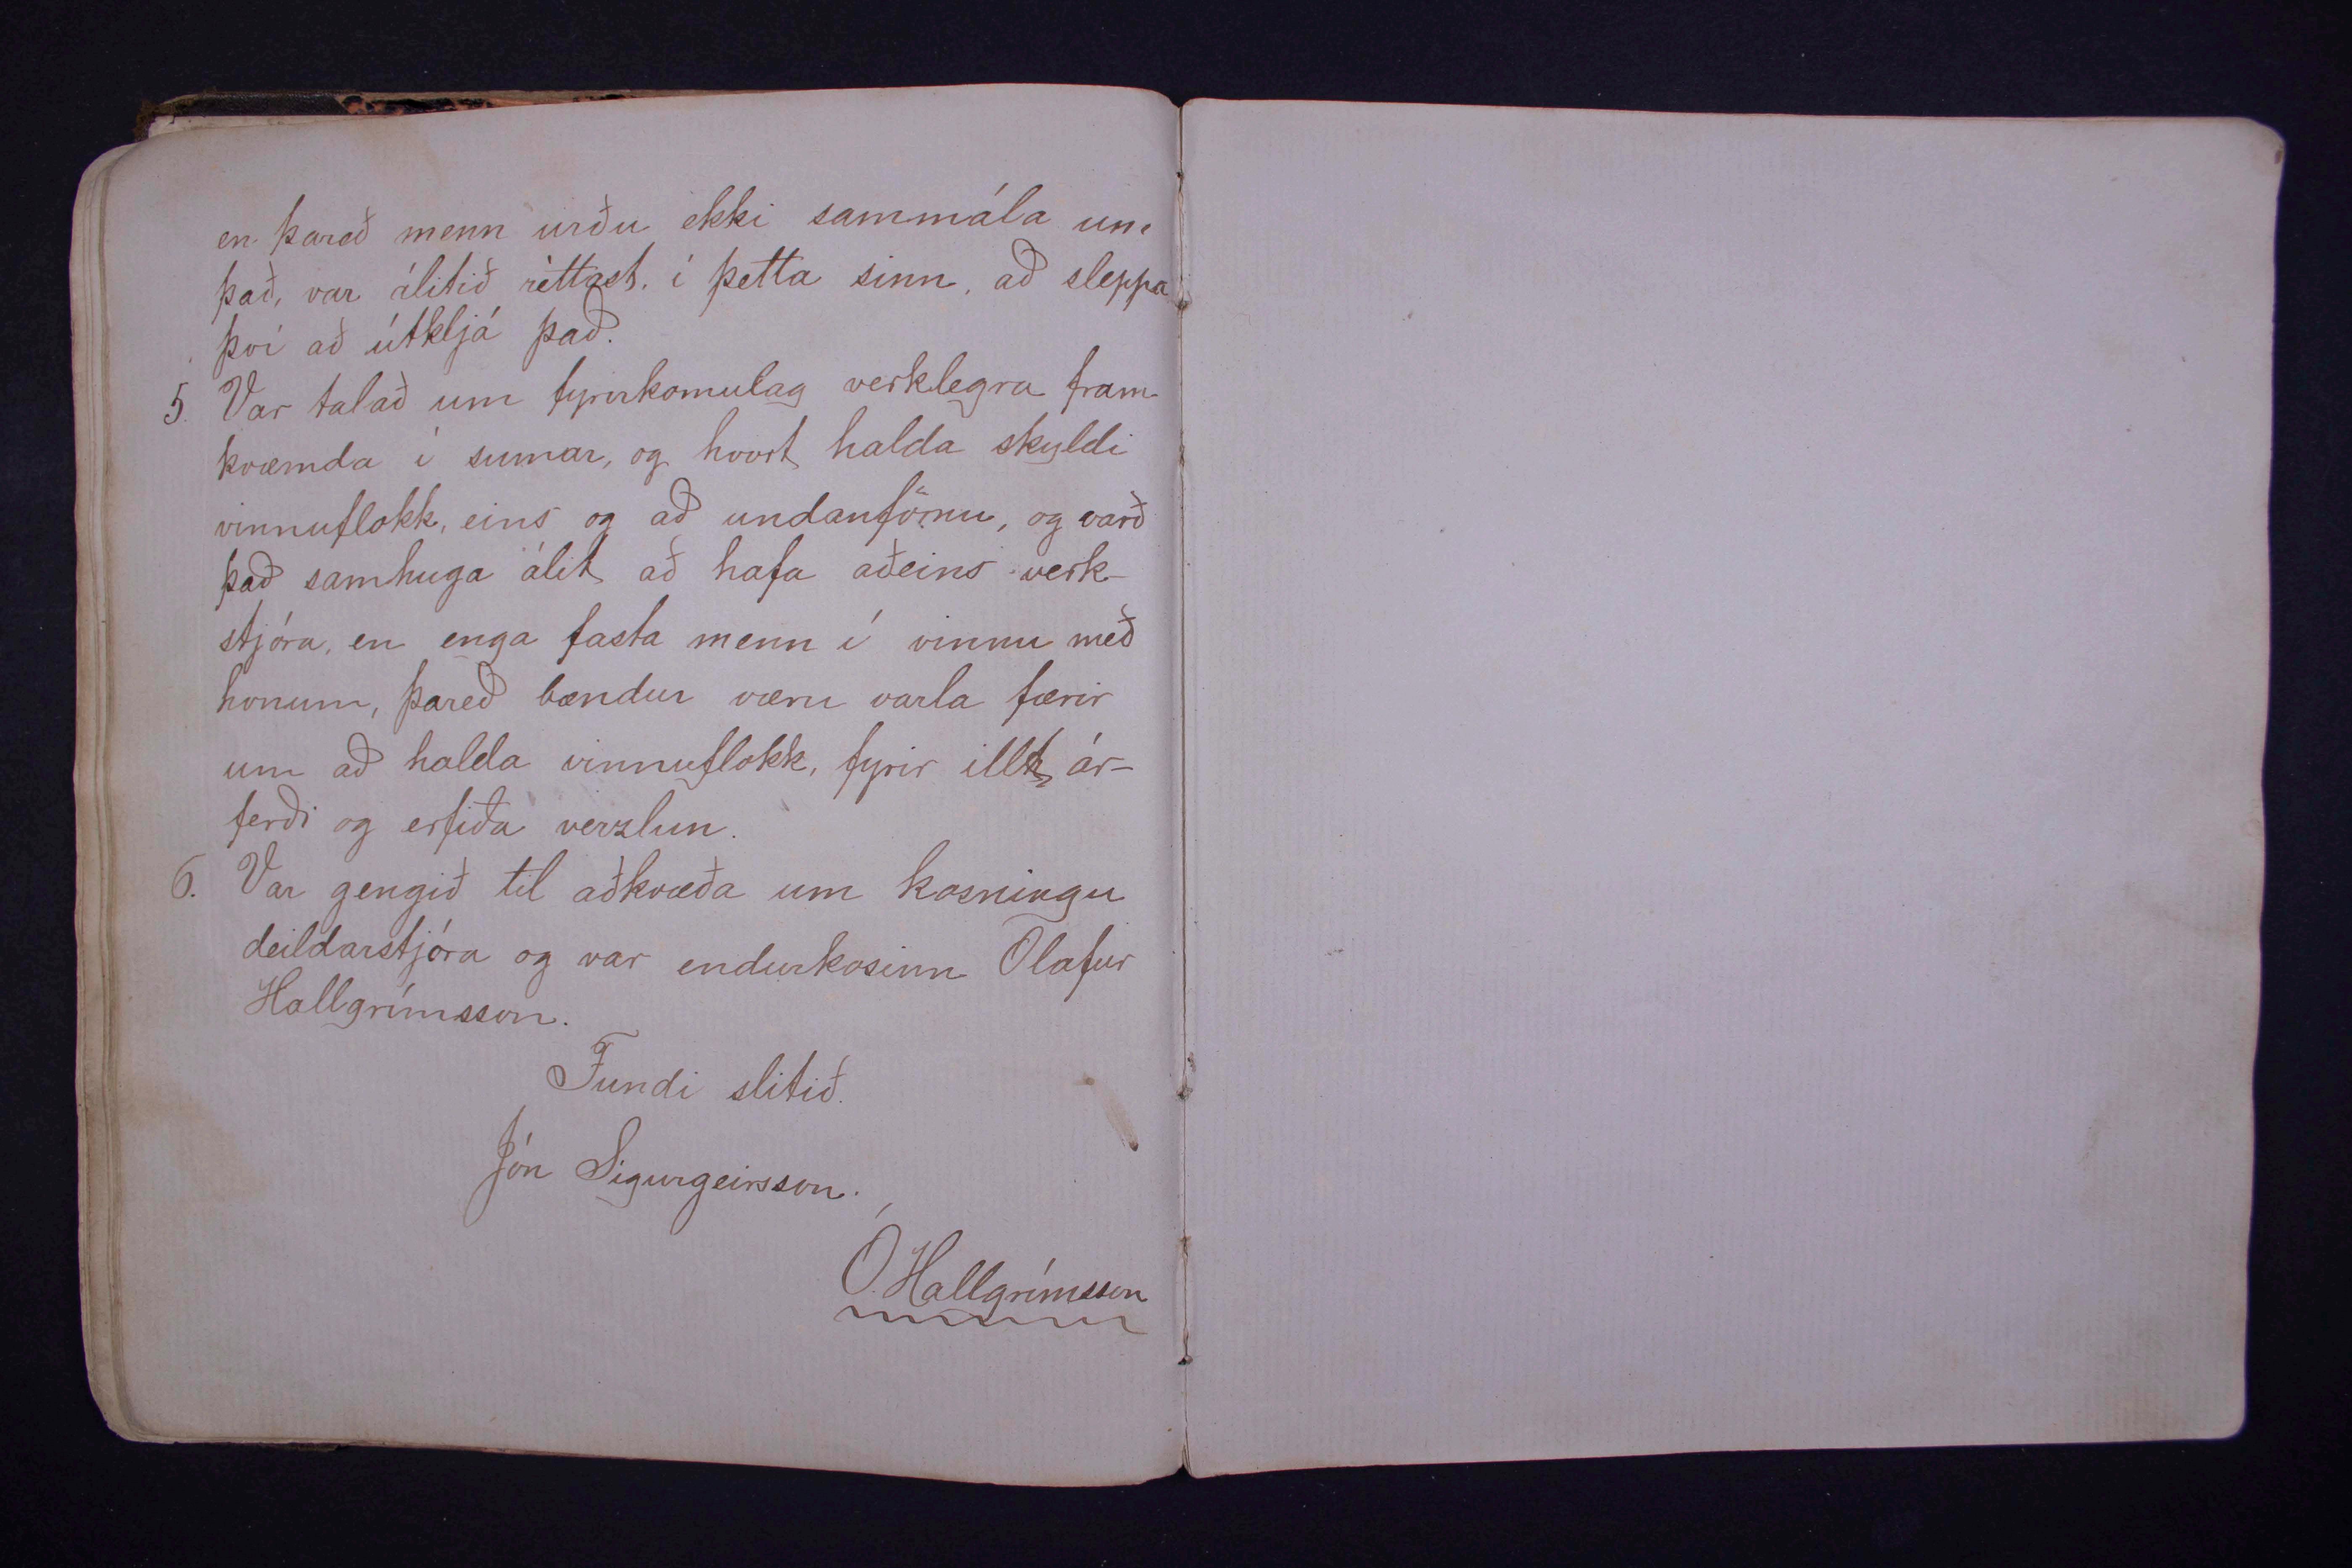 en þareð menn urðu ekki sammála um
það, var álitið réttast, í þetta sinn, að sleppa
því að útkljá það.
5. Var talað um fyrirkomulag verklegra fram-
kvæmda í sumar, og hvort halda skyldi
vinnuflokk, eins og að undanförnu, og varð
það samhuga álit að hafa aðeins verk-
stjóra, en enga fasta menn í vinnu með
honum, þareð bændur væru varla færir
um að halda vinnuflokk, fyrir illt ár-
ferði og erfiða verzlun.
6. Var gengið til aðkvæða um kosningu
deildarstjóra og var endurkosinn Olafur
Hallgrímsson.
Fundi slitið.
Jón Sigurgeirsson.
Ó. Hallgrímsson